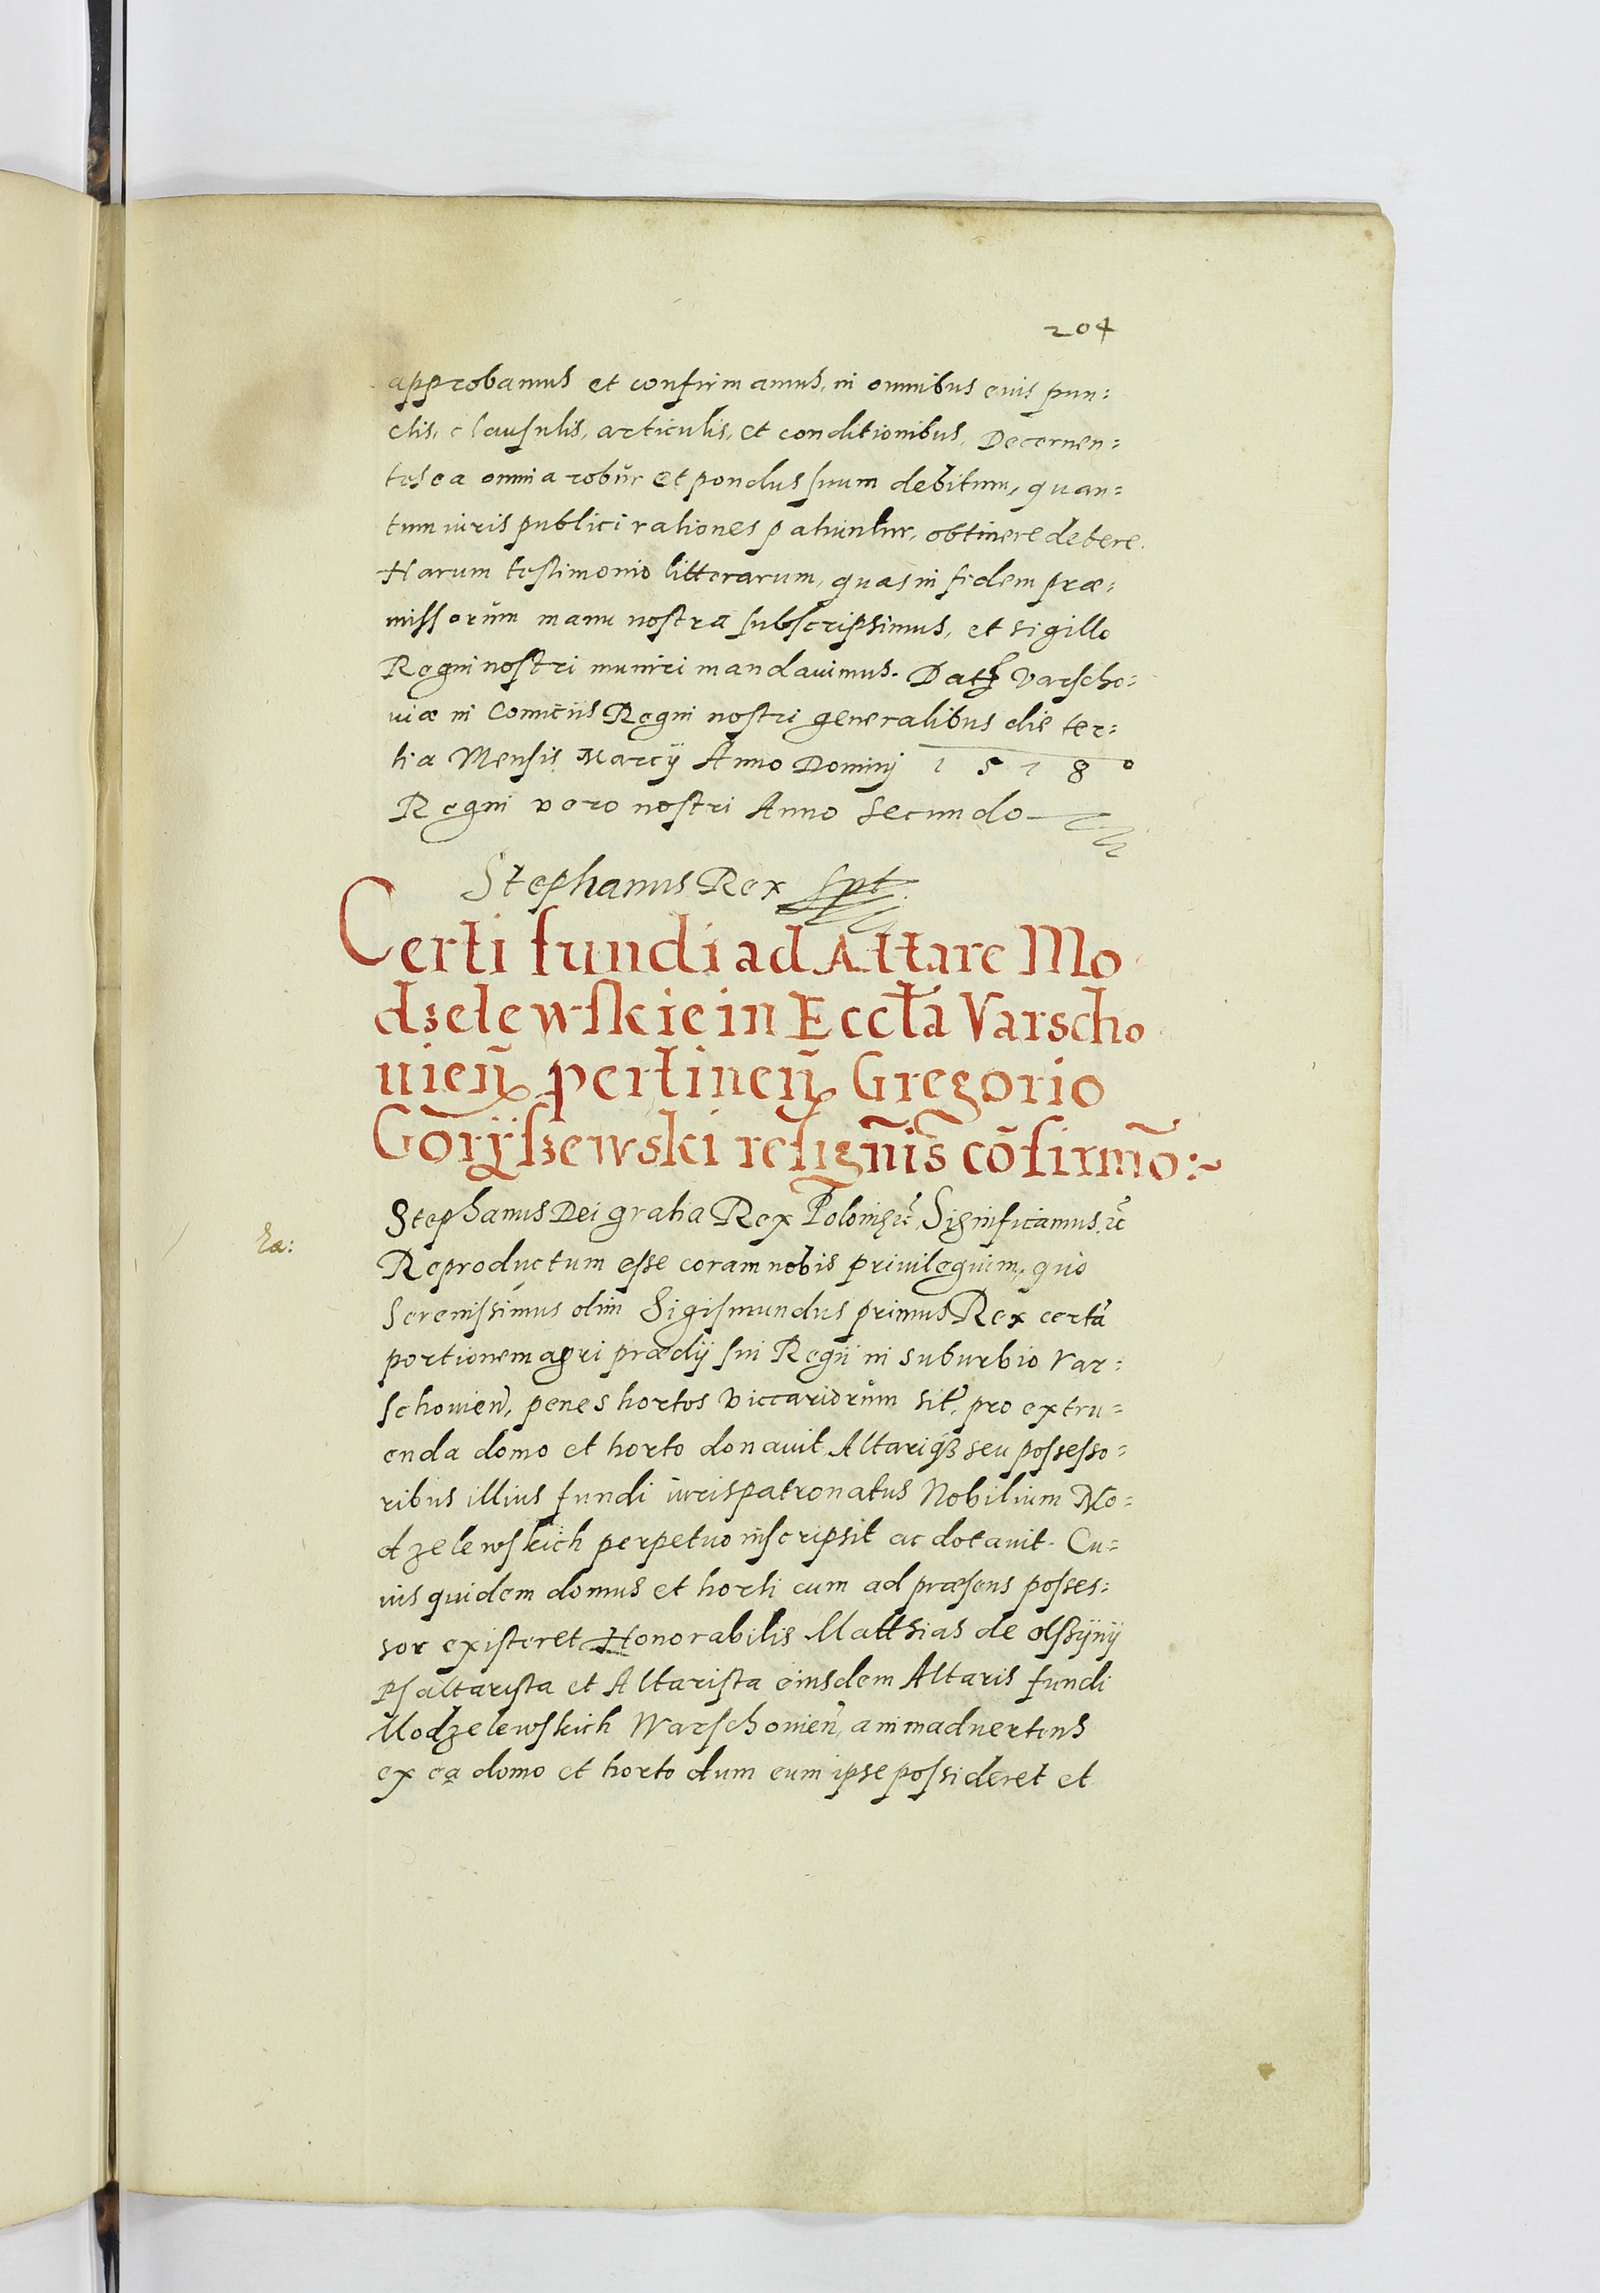 204
approbamus et confirmamus, in omnibus eius pun:
ctis, clausulis, articulis, et conditionibus, Decernen:
tes ea omnia robur et pondus suum debitum, quan:
tum iuris publici rationes patiuntur, obtinere debere.
Harum testimonio litterarum, quas in fidem præ:
missorum manu nostra subscripsimus, et sigillo
Regni nostri muniri mandauimus. Datꝫ Varscho:
uiæ in Comitiis Regni nostri generalibus die ter:
tia Mensis Marcÿ Anno Dominj 1578°
Regni vero nostri Anno secundo
Stephanus Rex spt
Certi fundi ad Altare Mo
dzelewskie in Eccła Varscho
uień pertineń Gregorio
Gorÿszewski resignīs cōfirmō:~
Stephanus Dei gratia Rex Polonię ꝛc̃, Significamus, ꝛc̃
Ra:
Reproductum esse coram nobis priuilegium, quo
Serenissimus olim Sigismundus primus Rex certã
portionem agri prædÿ sui Regÿ in suburbio Var:
schouień, penes hortos viccariorum sit̃, pro extru:
enda domo et horto donauit, Altarijs seu possesso:
ribus illius fundi iurispatronatus Nobilium Mo:
dzelewskich perpetuo inscripsit ac dotauit. Cu:
ius quidem domus et horti cum ad præsens posses:
sor existeret Honorabilis Matthias de Olssÿnÿ
Psaltarista et Altarista eiusdem Altaris fundi
Modzelewskich Warschouień, animaduertens
ex ea domo et horto dum eum ipse possideret et